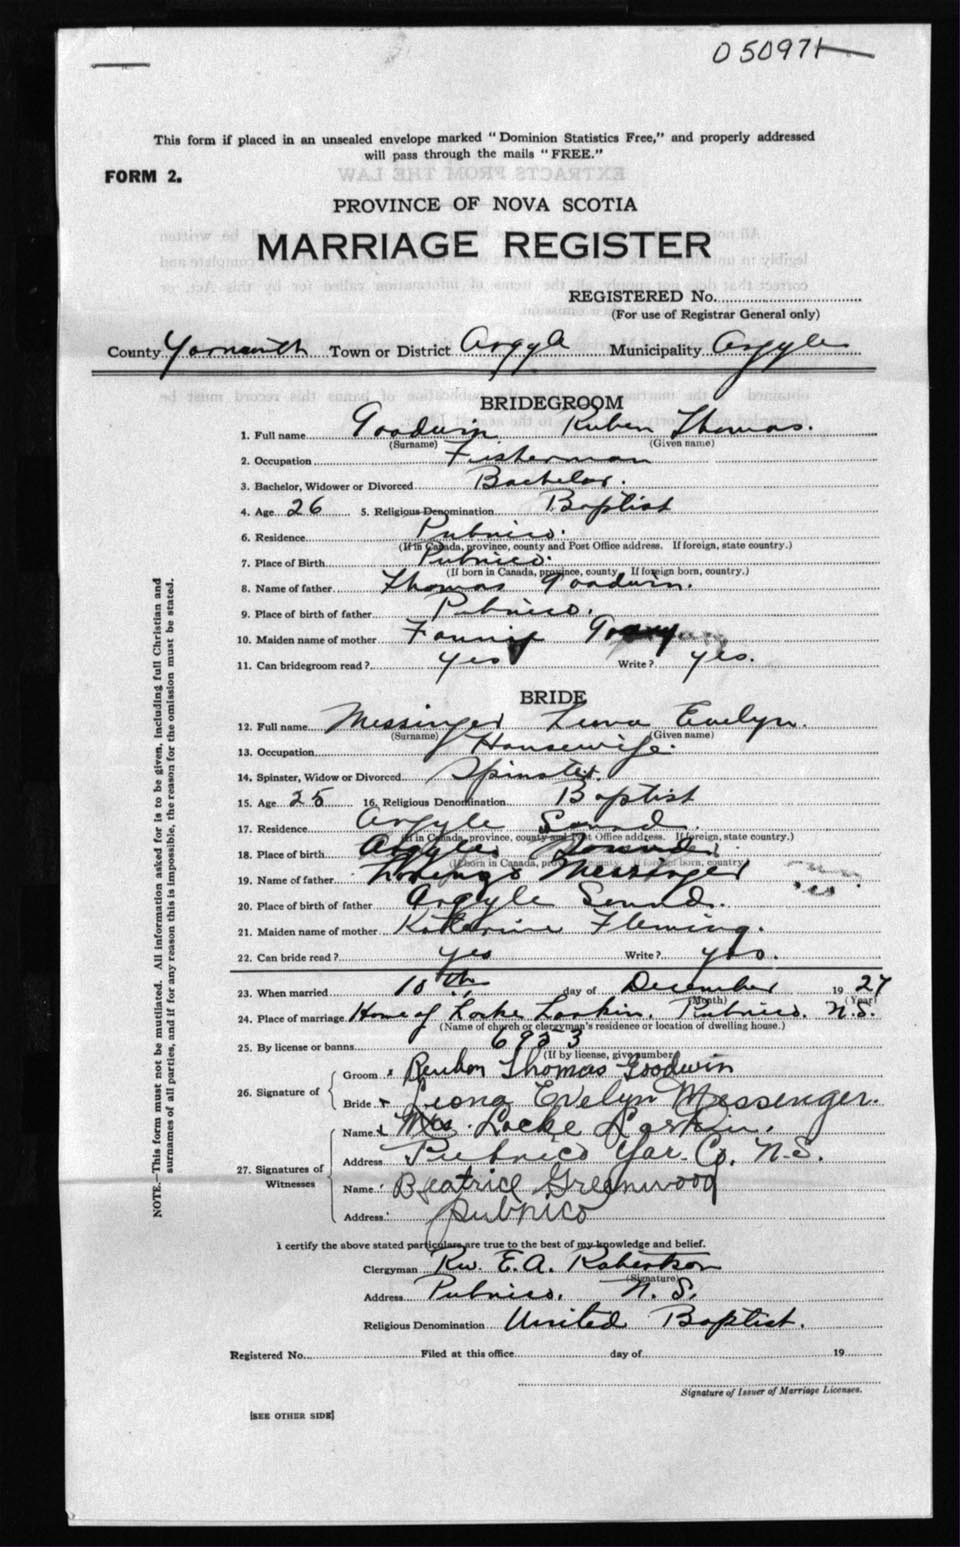 050971
This form if placed in an unsealed envelope marked "Dominion Statistics Free," and properly addressed
will pass through the mails "FREE."
FORM 2.
PROVINCE OF NOVA SCOTIA
MARRIAGE REGISTER
REGISTERED No.
(For use of Registrar General only)
County Yarmouth Town or District Argyle Municipality Argyle
BRIDEGROOM
1. Full name Goodwin Ruben Thomas.
(Surname) (Given name)
2. Occupation Fisherman
3. Bachelor, Widower or Divorced Bachelor.
4. Age 26 5. Religious Denomination Baptist
6. Residence Pubnico.
(If in Canada, province, county and Post Office address. If foreign, state country.)
7. Place of Birth Pubnico.
(If born in Canada, province, county. If foreign born, country.)
8. Name of father Thomas Goodwin.
9. Place of birth of father Pubnico.
10. Maiden name of mother Fannie
11. Can bridegroom read? yes Write? yes.
BRIDE
12. Full name Messinger Evelyn.
(Surname) (Given name)
13. Occupation Housewife.
14. Spinster, Widow or Divorced Spinster.
15. Age 25 16. Religious Denomination Baptist
17. Residence Argyle Sound.
(If in Canada, province, county and Post Office address. If foreign, state country.)
18. Place of birth Argyle Sound.
(If born in Canada, province, county. If foreign born, country.)
19. Name of father Lorenzo Messinger
20. Place of birth of father Argyle Sound.
21. Maiden name of mother Katherine Fleming.
22. Can bride read? yes Write? yes.
23. When married 10th day of December 1927
(Month) (Year)
24. Place of marriage Home of Locke Larkin. Pubnico. N.S.
(Name of church or clergyman's residence or location of dwelling house.)
25. By license or banns 6953
(If by license, give number)
26. Signature of
Groom Reuben Thomas Goodwin
Bride Leona Evelyn Messenger.
27. Signatures of Witnesses
Name Mrs. Locke Larkin.
Address Pubnico Yar. Co. N.S.
Name Beatrice Greenwood
Address Pubnico
I certify the above stated particulars are true to the best of my knowledge and belief.
Clergyman Rev. E. A. Robertson
(Signature)
Address Pubnico. N. S.
Religious Denomination United Baptist.
Registered No. Filed at this office day of 19
Signature of Issuer of Marriage Licenses.
[SEE OTHER SIDE]
NOTE.—This form must not be mutilated. All information asked for is to be given, including full Christian and
surnames of all parties, and if for any reason this is impossible, the reason for the omission must be stated.